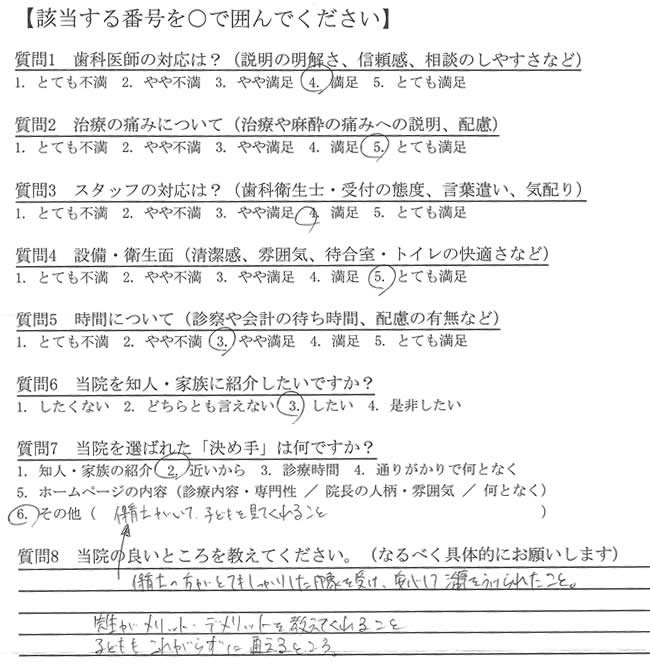 【該当する番号を〇で囲んでください】
質問1 歯科医師の対応は？（説明の明解さ、信頼感、相談のしやすさなど）
1. とても不満 2. やや不満 3. やや満足 4. 満足 5. とても満足
質問2 治療の痛みについて（治療や麻酔の痛みへの説明、配慮）
1. とても不満 2. やや不満 3. やや満足 4. 満足 5. とても満足
質問3 スタッフの対応は？（歯科衛生士・受付の態度、言葉遣い、気配り）
1. とても不満 2. やや不満 3. やや満足 4. 満足 5. とても満足
質問4 設備・衛生面（清潔感、雰囲気、待合室・トイレの快適さなど）
1. とても不満 2. やや不満 3. やや満足 4. 満足 5. とても満足
質問5 時間について（診察や会計の待ち時間、配慮の有無など）
1. とても不満 2. やや不満 3. やや満足 4. 満足 5. とても満足
質問6 当院を知人・家族に紹介したいですか？
1. したくない 2. どちらとも言えない 3. したい 4. 是非したい
質問7 当院を選ばれた「決め手」は何ですか？
1. 知人・家族の紹介 2. 近いから 3. 診療時間 4. 通りがかりで何となく
5. ホームページの内容（診療内容・専門性 ／ 院長の人柄・雰囲気 ／ 何となく）
6. その他（ 保育士がいて、子どもを見てくれること ）
質問8 当院の良いところを教えてください。（なるべく具体的にお願いします）
保育士の方がとてもしっかりした印象を受け、安心して治療をうけられたこと。
先生がメリット・デメリットを教えてくれること
子どももこわがらずに通えるところ。